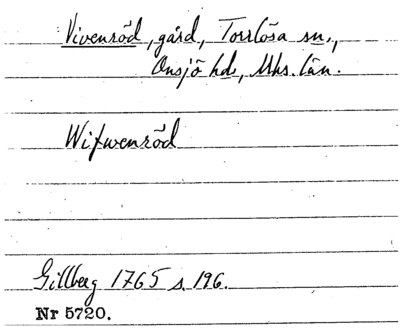 Vivenröd, gård, Torrlösa sn.,
Onsjö hd., Mhs. län.
Wifwenröd
Gillberg 1765 s. 196.
Nr 5720.